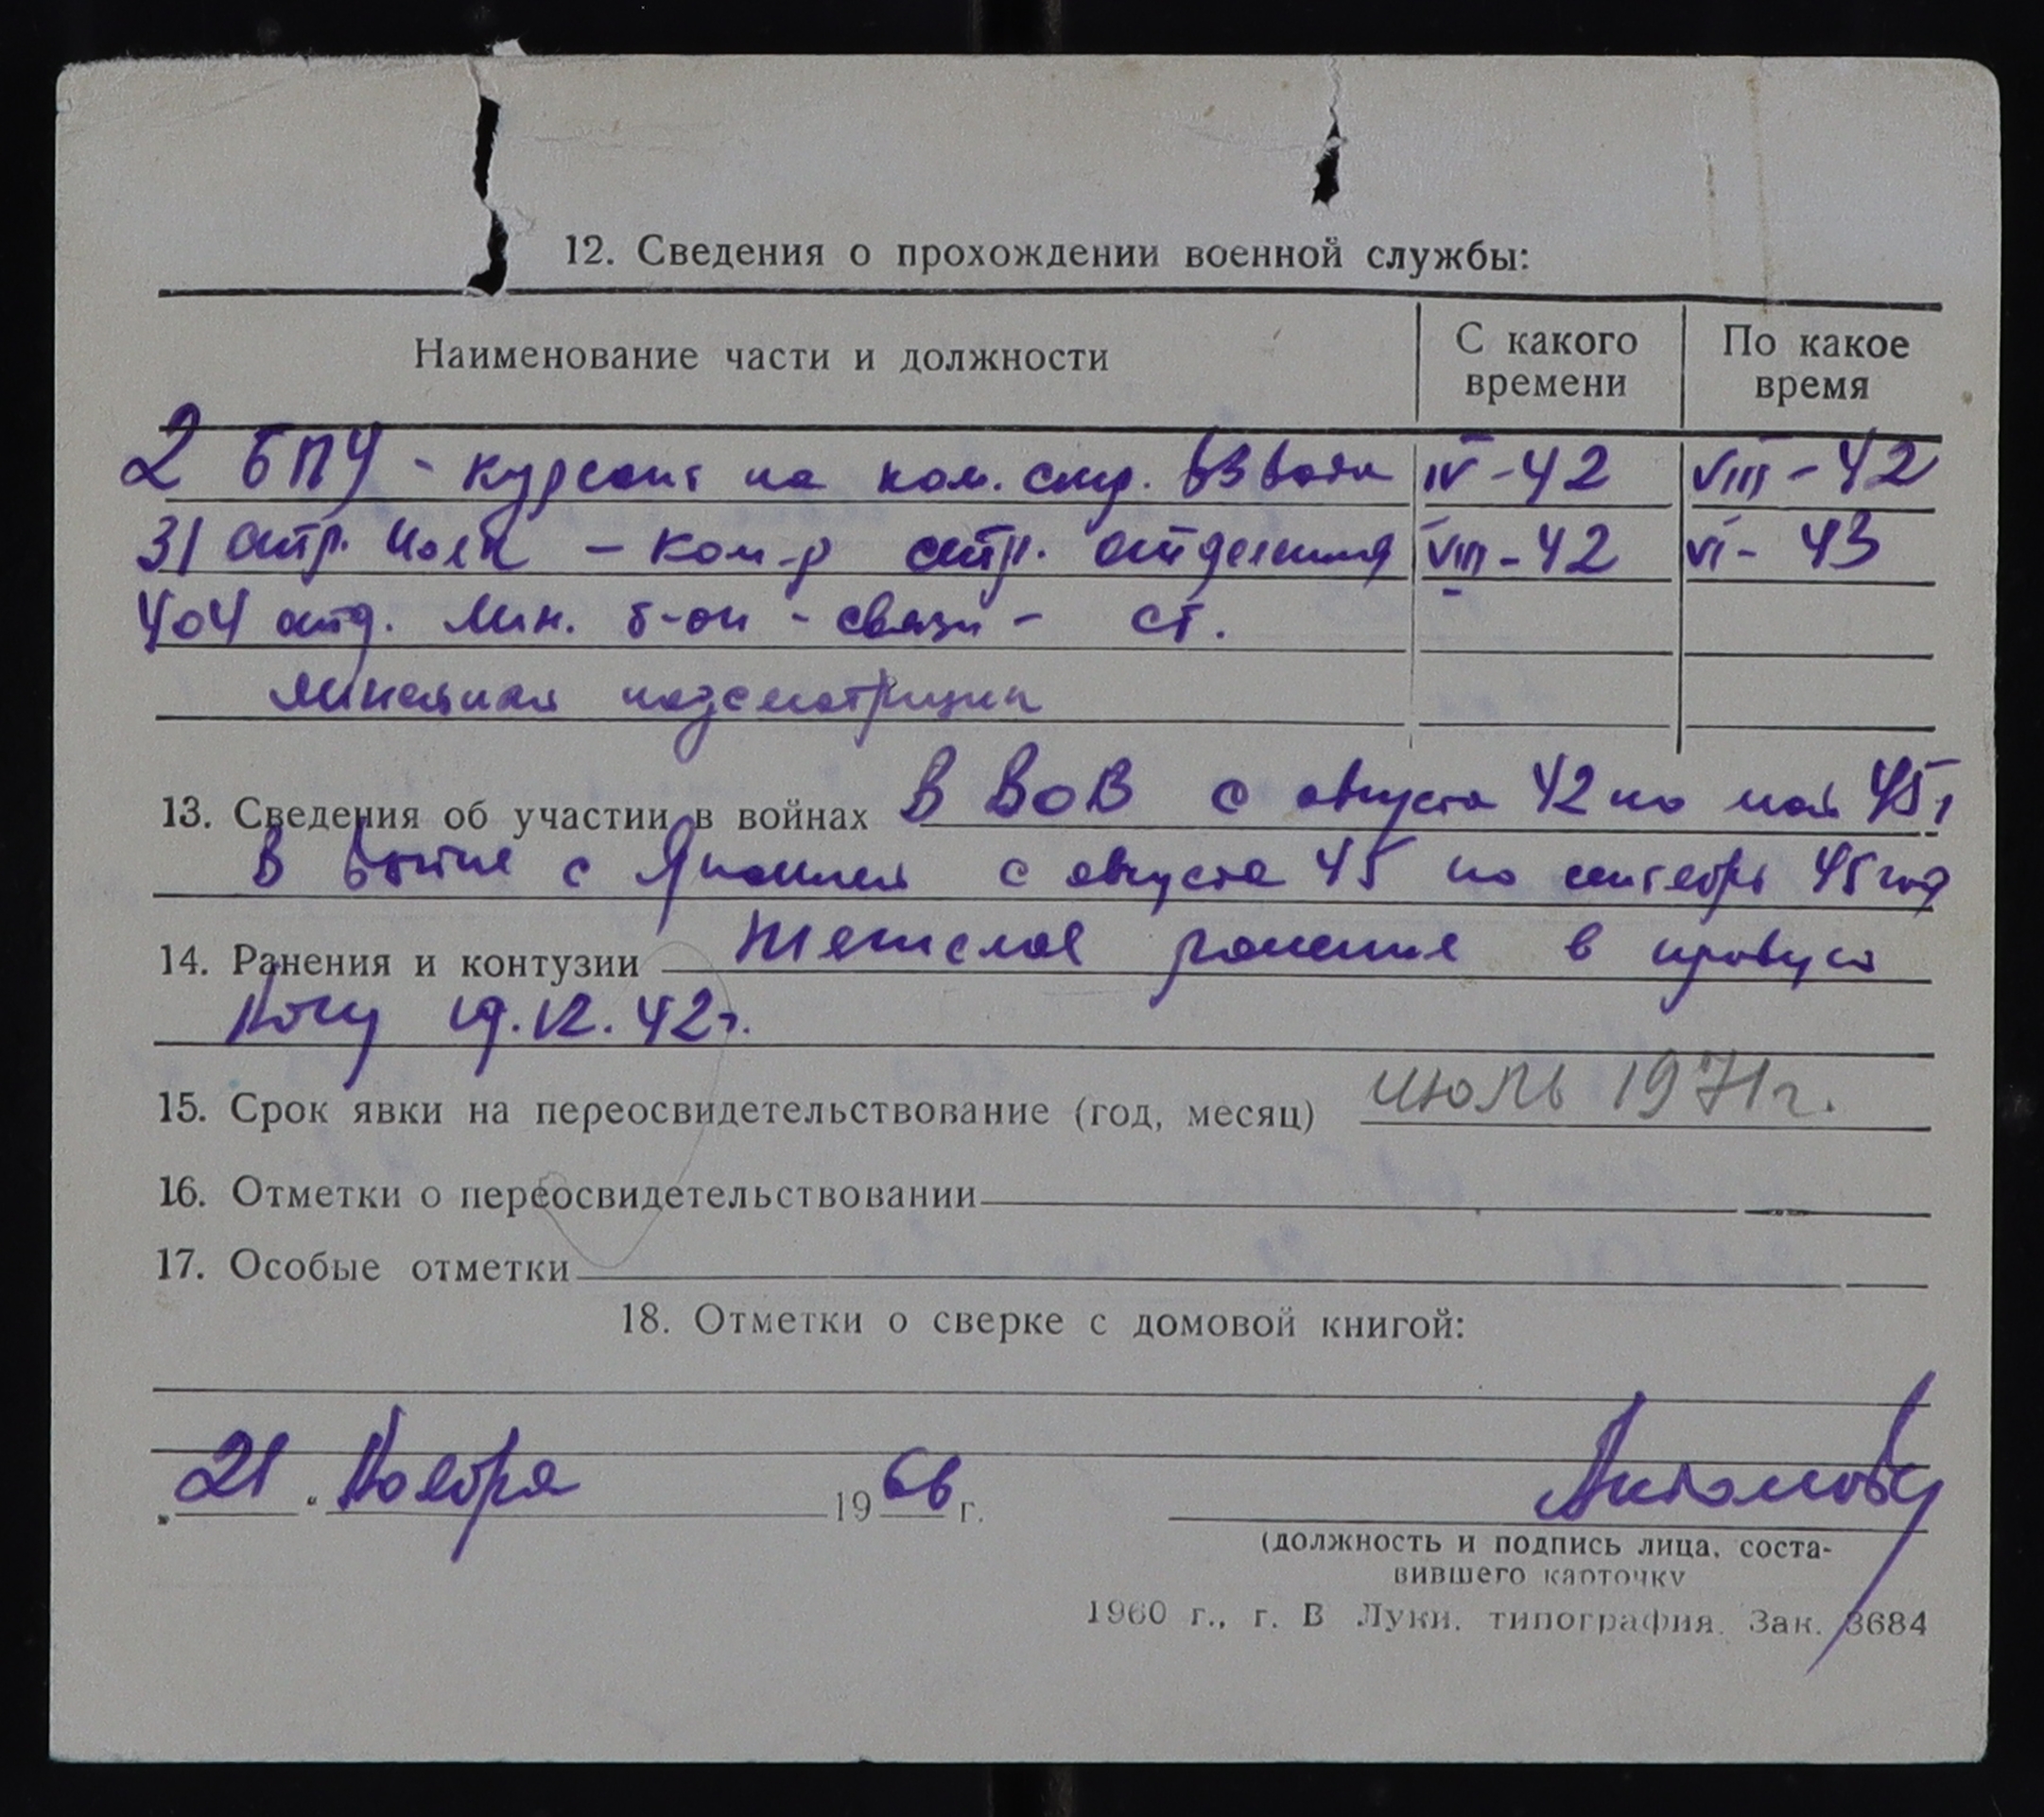 12. Сведения о прохождении военной службы:
Наименование части и должности
С какого времени
По какое время
2 БПУ - курсант на ком. стр. взвода IV-42 VIII-42
31 стр. полк - ком-р стр. отделения VIII-42 VI-43
404 отд. лин. б-он - связи - ст.
линейная надсмотрщик
13. Сведения об участии в войнах В ВОВ с августа 42 по май 45г
В войне с Японией с августа 45 по сентябрь 45 год
14. Ранения и контузии Тяжелое ранение в правую
ногу 19.12.42г.
15. Срок явки на переосвидетельствование (год, месяц) июль 1971г.
16. Отметки о переосвидетельствовании
17. Особые отметки
18. Отметки о сверке с домовой книгой:
„21" Ноября 1966 г.
(должность и подпись лица, соста-
вившего карточку
1960 г., г. В Луки, типография. Зак. 3684